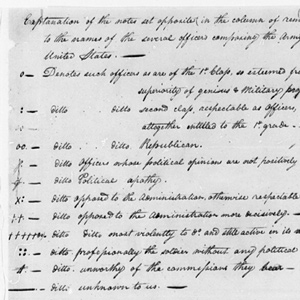 Explanation of the notes set opposite (in the column of rem
to the names of the several officers composing the Army
United States. —
o — Denotes such officers as are of the 1st Class, so esteemed from
superiority of genious & Military prof
: — ditto ditto second class, respectable as officers,
altogether entitled to the 1st grade.
oo. — ditto . ditto. Republican.
— ditto Officers whose political opinions are not positively
— ditto Political apathy.
x: — ditto opposed to the Administration, otherwise respectable
++ — ditto opposed to the Administration more decisively. —
+++ ditto ditto most violently to do and still active in its
:: — ditto professionally the soldier without any political
— ditto unworthy of the commissions they bear —
— ditto unknown to us. —